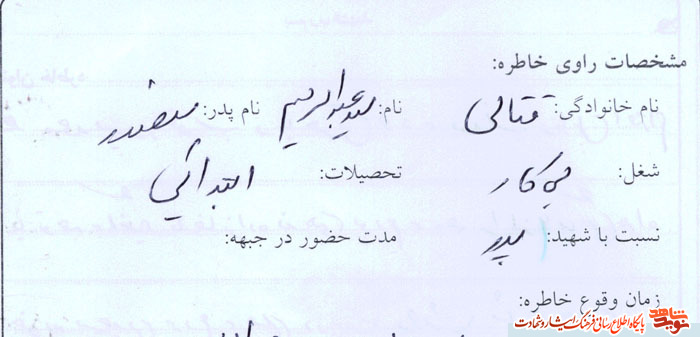 مشخصات راوی خاطره:
نام خانوادگی: قتالی نام: سیدعبدالرحیم نام پدر:
شغل: بی کار تحصیلات: ابتدائی
نسبت با شهید: پدر مدت حضور در جبهه:
زمان وقوع خاطره:
نوید شاهد پایگاه اطلاع رسانی فرهنگ ایثار و شهادت